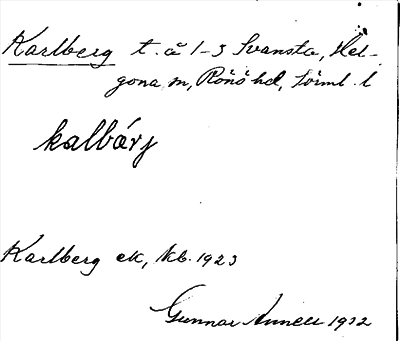 Karlberg t. å 1-3 Svansta, Hel-
gona sn, Rönö hd, Sörml. l
kalbárj
Karlberg ek, kb. 1923
Gunnar Annell 1932